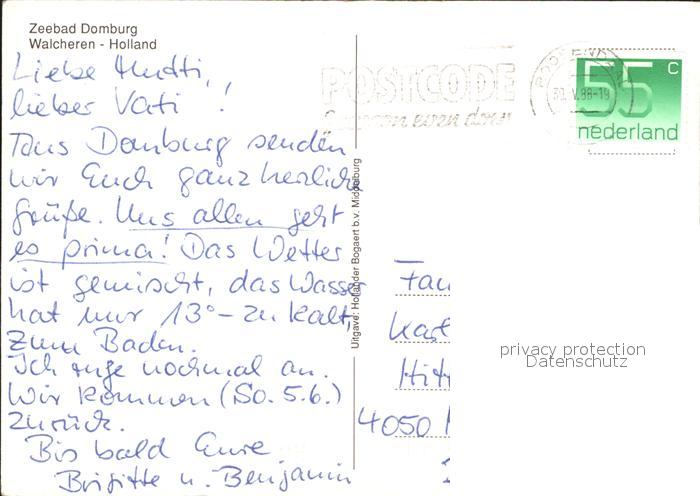 Zeebad Domburg
Walcheren - Holland
Liebe Mutti,
lieber Vati!
Aus Domburg senden
wir Euch ganz herzliche
Grüße. Uns allen geht
es prima! Das Wetter
ist gemischt, das Wasser
hat nur 13° - zu kalt,
zum Baden.
Ich rufe nochmal an.
Wir kommen (So. 5.6.)
zurück.
Bis bald Eure
Brigitte u. Benjamin
Uitgave: Hollander Bogaert b.v. Middelburg
POSTCODE
even door
30.V.88-19
55 c
nederland
Fam
Kast
Hit
4050
privacy protection
Datenschutz